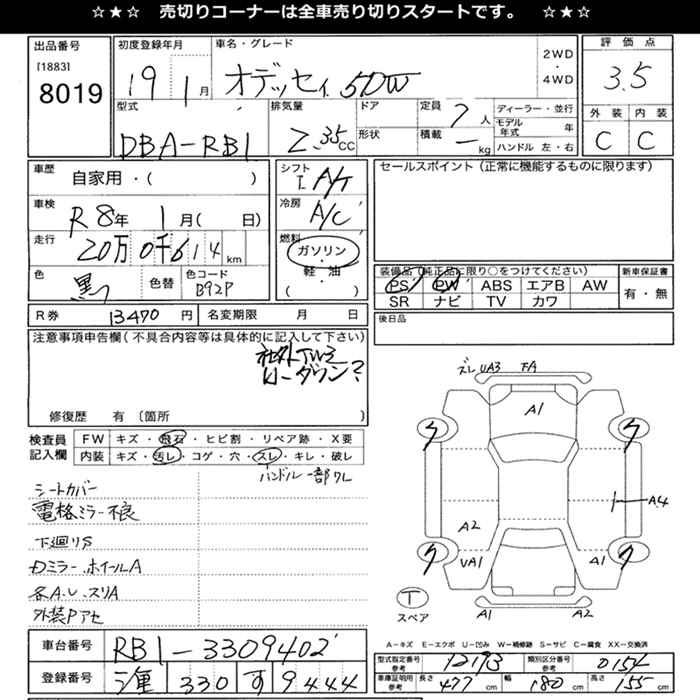 ☆★☆ 売切りコーナーは全車売り切りスタートです。 ☆★☆
出品番号
[1883]
8019
初度登録年月
19 1月
車名・グレード
オデッセイ 5DW
2WD
・
4WD
評価点
3.5
外装 内装
C C
型式
DBA-RB1
排気量
2.35CC
ドア
形状
定員
7人
積載
— kg
ディーラー・並行
モデル年式 年
ハンドル 左・右
車歴
自家用・( )
車検
R8年 1月( 日)
走行
20万0千614km
色
黒
色替
色コード
B92P
シフト
I A/T
冷房
A/C
燃料
ガソリン
・
軽・油
( )
セールスポイント(正常に機能するものに限ります)
装備品(純正品に限り○をつけてください)
PS PW ABS エアB AW
SR ナビ TV カワ
新車保証書
有・無
R券 13470円
名変期限 月 日
後日品
注意事項申告欄(不具合内容等は具体的に記入して下さい)
社外TV
ローダウン?
修復歴 有 〔箇所 〕
検査員
記入欄
FW キズ・飛石・ヒビ割・リペア跡・X要
内装 キズ・汚レ・コゲ・穴・スレ・キレ・破レ
ハンドル一部ワレ
シートカバー
電格ミラー不良
下廻りS
ドミラー、ホイールA
各A.U.スリA
外装Pアセ
ズレ UA3 FA
A1
ク ク
A4
A2
UA1 A1
ク ク
T
スペア
A1 A2
A−キズ E−エクボ U−凹み W−補修跡 S−サビ C−腐食 XX−交換済
車台番号
RB1-3309402
登録番号
330 す 9444
型式指定番号
参考
12193
類別区分番号
参考
0154
車庫証明用
参考
長さ 477cm 幅 180cm 高さ 155cm